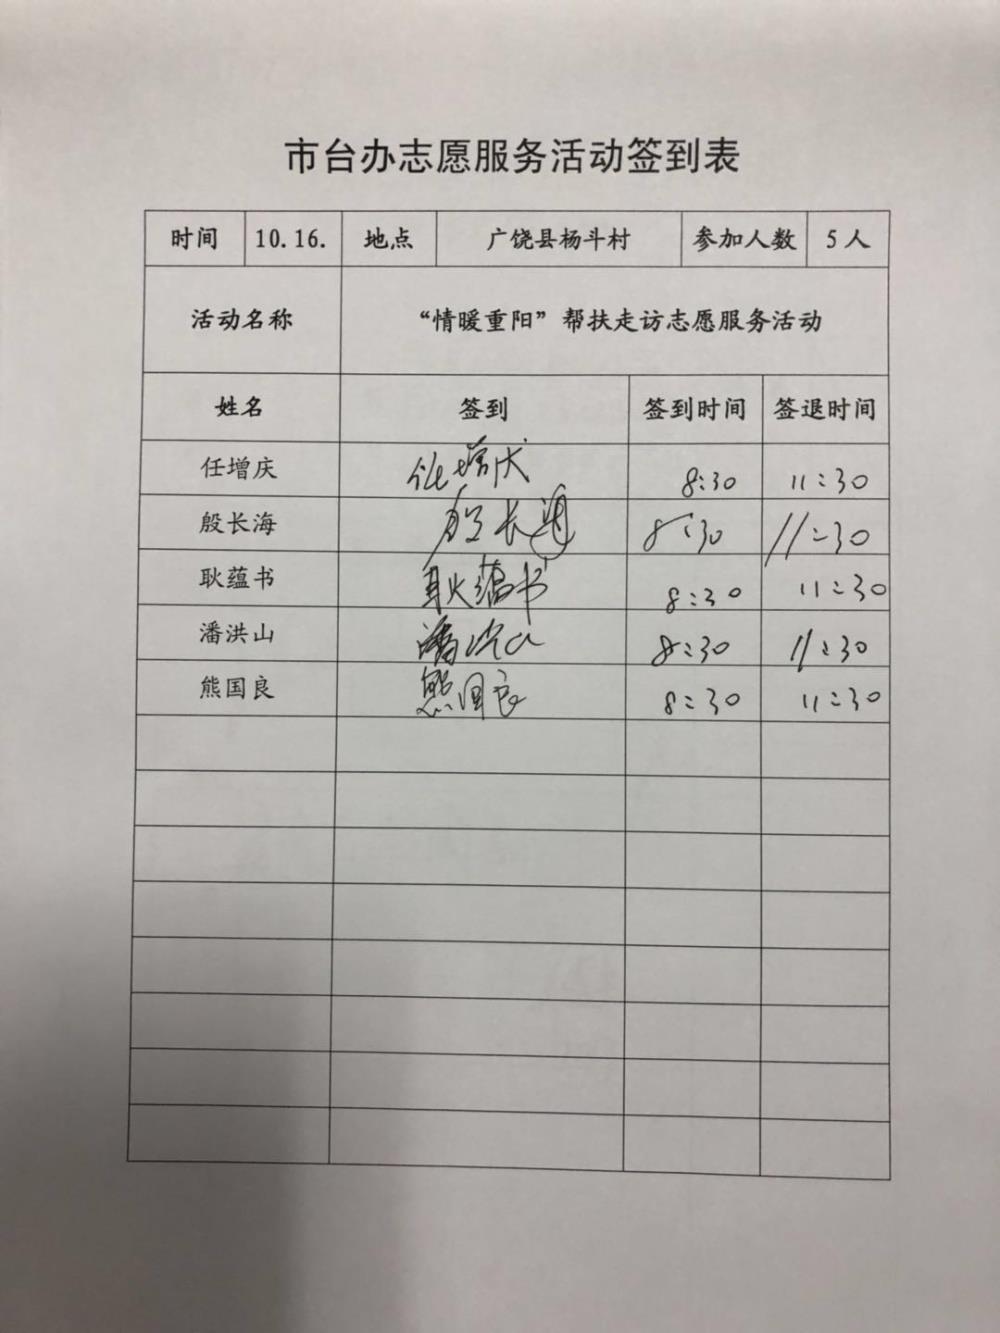 市台办志愿服务活动签到表
时间 10.16. 地点 广饶县杨斗村 参加人数 5人
活动名称 “情暖重阳”帮扶走访志愿服务活动
姓名 签到 签到时间 签退时间
任增庆 任增庆 8:30 11:30
殷长海 殷长海 8:30 11:30
耿蕴书 耿蕴书 8:30 11:30
潘洪山 潘洪山 8:30 11:30
熊国良 熊国良 8:30 11:30